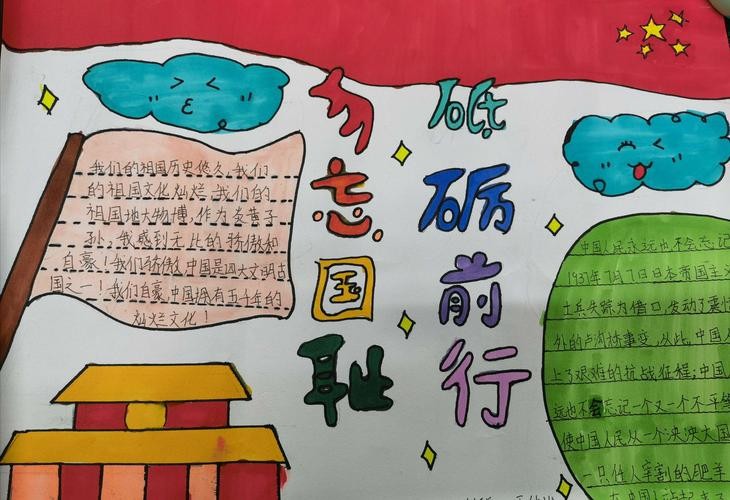 勿忘国耻
砥砺前行
我们的祖国历史悠久,我们
的祖国文化灿烂,我们的
祖国地大物博,作为炎黄子
孙,我感到无比的骄傲和
自豪!我们骄傲,中国是四大文明古
国之一!我们自豪,中国拥有五千年的
灿烂文化!
中国人民永远也不会忘记
1937年7月7日日本帝国主义
士兵失踪为借口,发动了震惊
外的卢沟桥事变。从此,中国人
上了艰难的抗战征程;中国
远也不会忘记一个又一个不平等
使中国人民从一个泱泱大国
一只任人宰割的肥羊